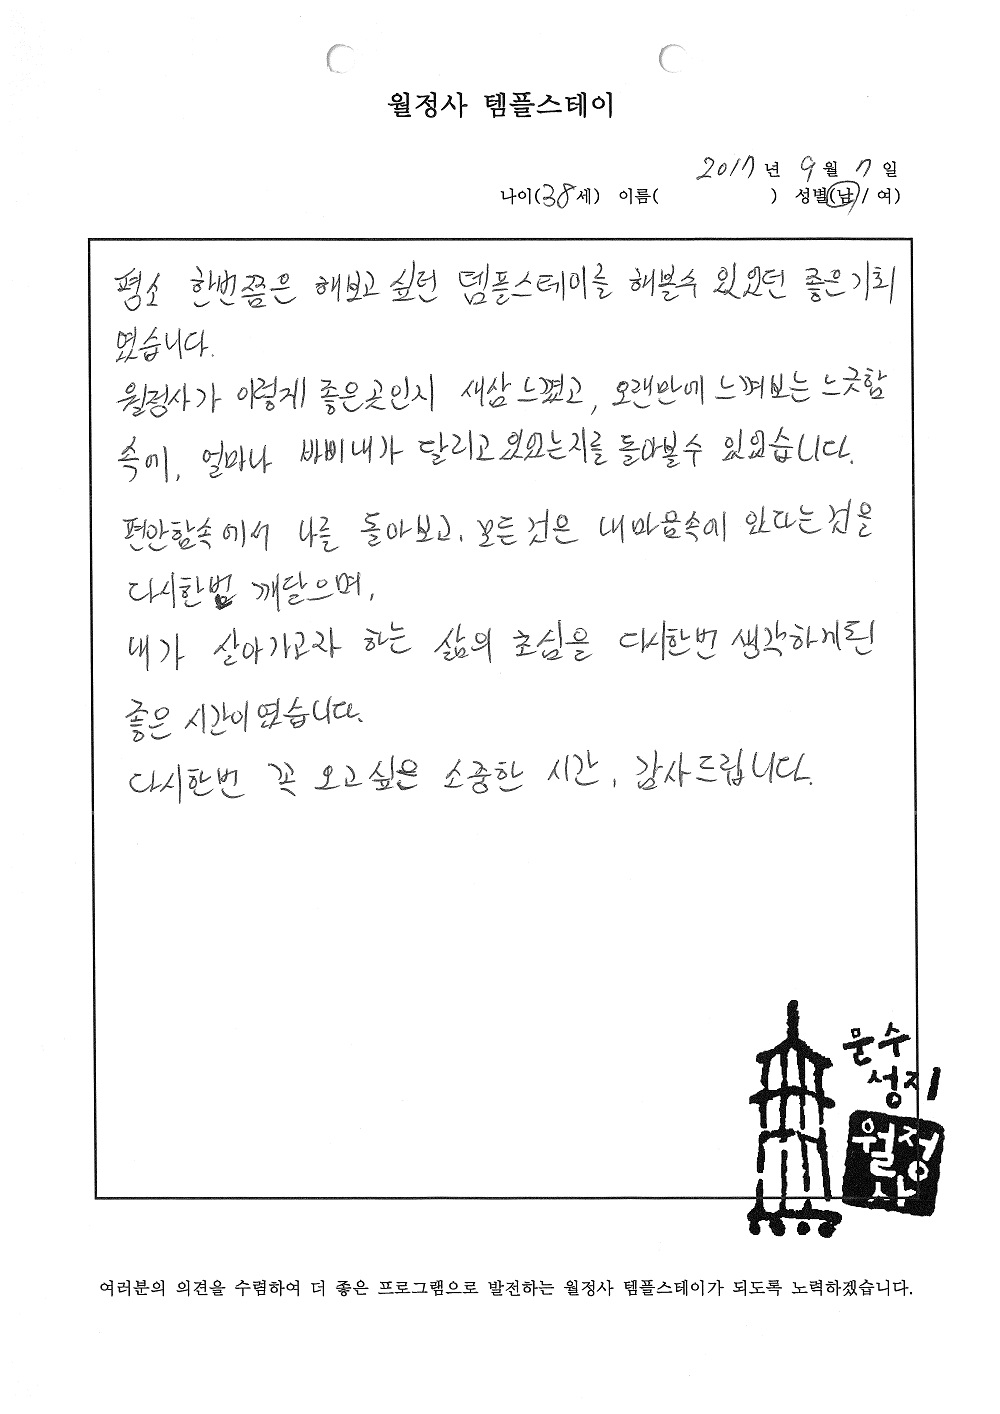 월정사 템플스테이
2017년 9월 7일
나이(38세) 이름( ) 성별(남/여)
평소 한번쯤은 해보고 싶던 템플스테이를 해볼수 있었던 좋은기회
였습니다.
월정사가 이렇게 좋은곳인지 새삼 느꼈고, 오랜만에 느껴보는 느긋함
속에, 얼마나 바삐 내가 달리고 있었는지를 돌아볼수 있었습니다.
편안함속에서 나를 돌아보고, 모든 것은 내마음속에 있다는 것을
다시한범 깨달으며,
내가 살아가고자 하는 삶의 초심을 다시한번 생각하게된
좋은 시간이였습니다.
다시한번 꼭 오고싶은 소중한 시간, 감사드립니다.
문수
성지
월정
사
여러분의 의견을 수렴하여 더 좋은 프로그램으로 발전하는 월정사 템플스테이가 되도록 노력하겠습니다.